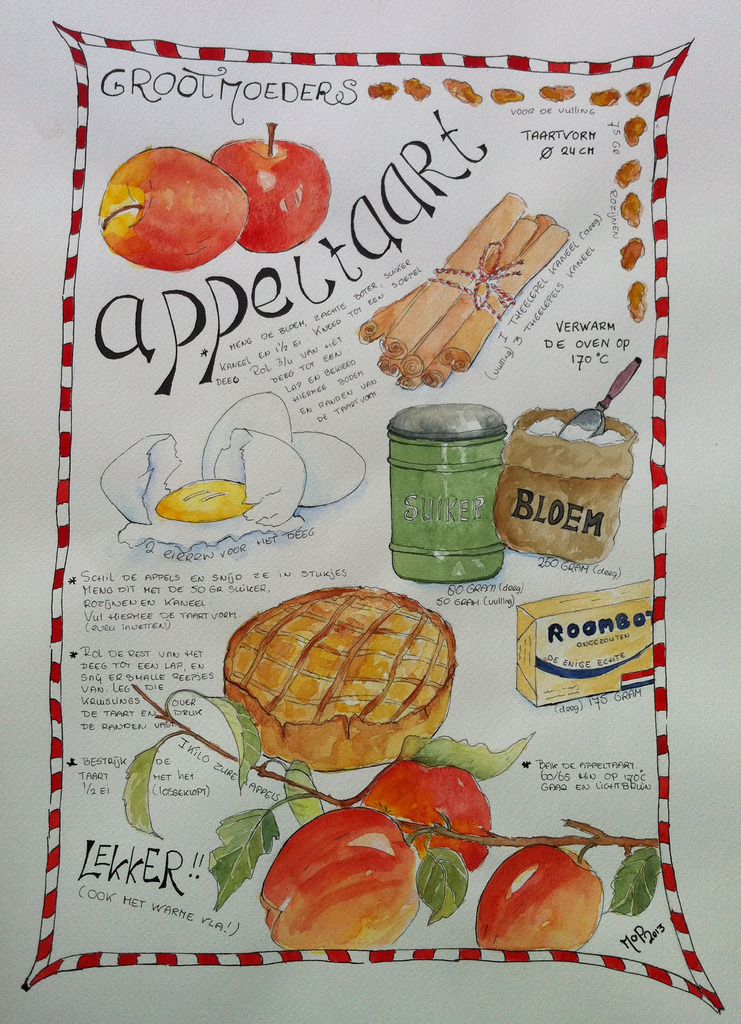 GROOTMOEDERS
appeltaart
VOOR DE VULLING
75 GR ROZIJNEN
TAARTVORM
Ø 24 CM
1 THEELEPEL KANEEL (deeg)
(vulling) 3 THEELEPELS KANEEL
VERWARM
DE OVEN OP
170 °C
* MENG DE BLOEM, ZACHTE BOTER, SUIKER
KANEEL EN 1½ EI KNEED TOT EEN SOEPEL
DEEG. ROL 3/4 VAN HET
DEEG TOT EEN
LAP EN BEKLEED
HIERMEE BODEM
EN RANDEN VAN
DE TAARTVORM
2 EIEREN VOOR HET DEEG
SUIKER
80 GRAM (deeg)
50 GRAM (vulling)
BLOEM
250 GRAM (deeg)
ROOMBO
ONGEZOUTEN
DE ENIGE ECHTE
(deeg) 175 GRAM
* SCHIL DE APPELS EN SNIJD ZE IN STUKJES
MENG DIT MET DE 50 GR SUIKER,
ROZIJNEN EN KANEEL
VUL HIERMEE DE TAARTVORM
(EVEN INVETTEN)
* ROL DE REST VAN HET
DEEG TOT EEN LAP, EN
SNIJ ER SMALLE REEPJES
VAN. LEG DIE
KRUISLINGS OVER
DE TAART EN DRUK
DE RANDEN VAST
1 KILO ZURE APPELS
* BESTRIJK DE
TAART MET HET
1/2 EI (LOSGEKLOPT)
* BAK DE APPELTAART
60/65 MIN OP 170°C
GAAR EN LICHTBRUIN
LEKKER!!
(OOK MET WARME VLA!)
MOP 2013